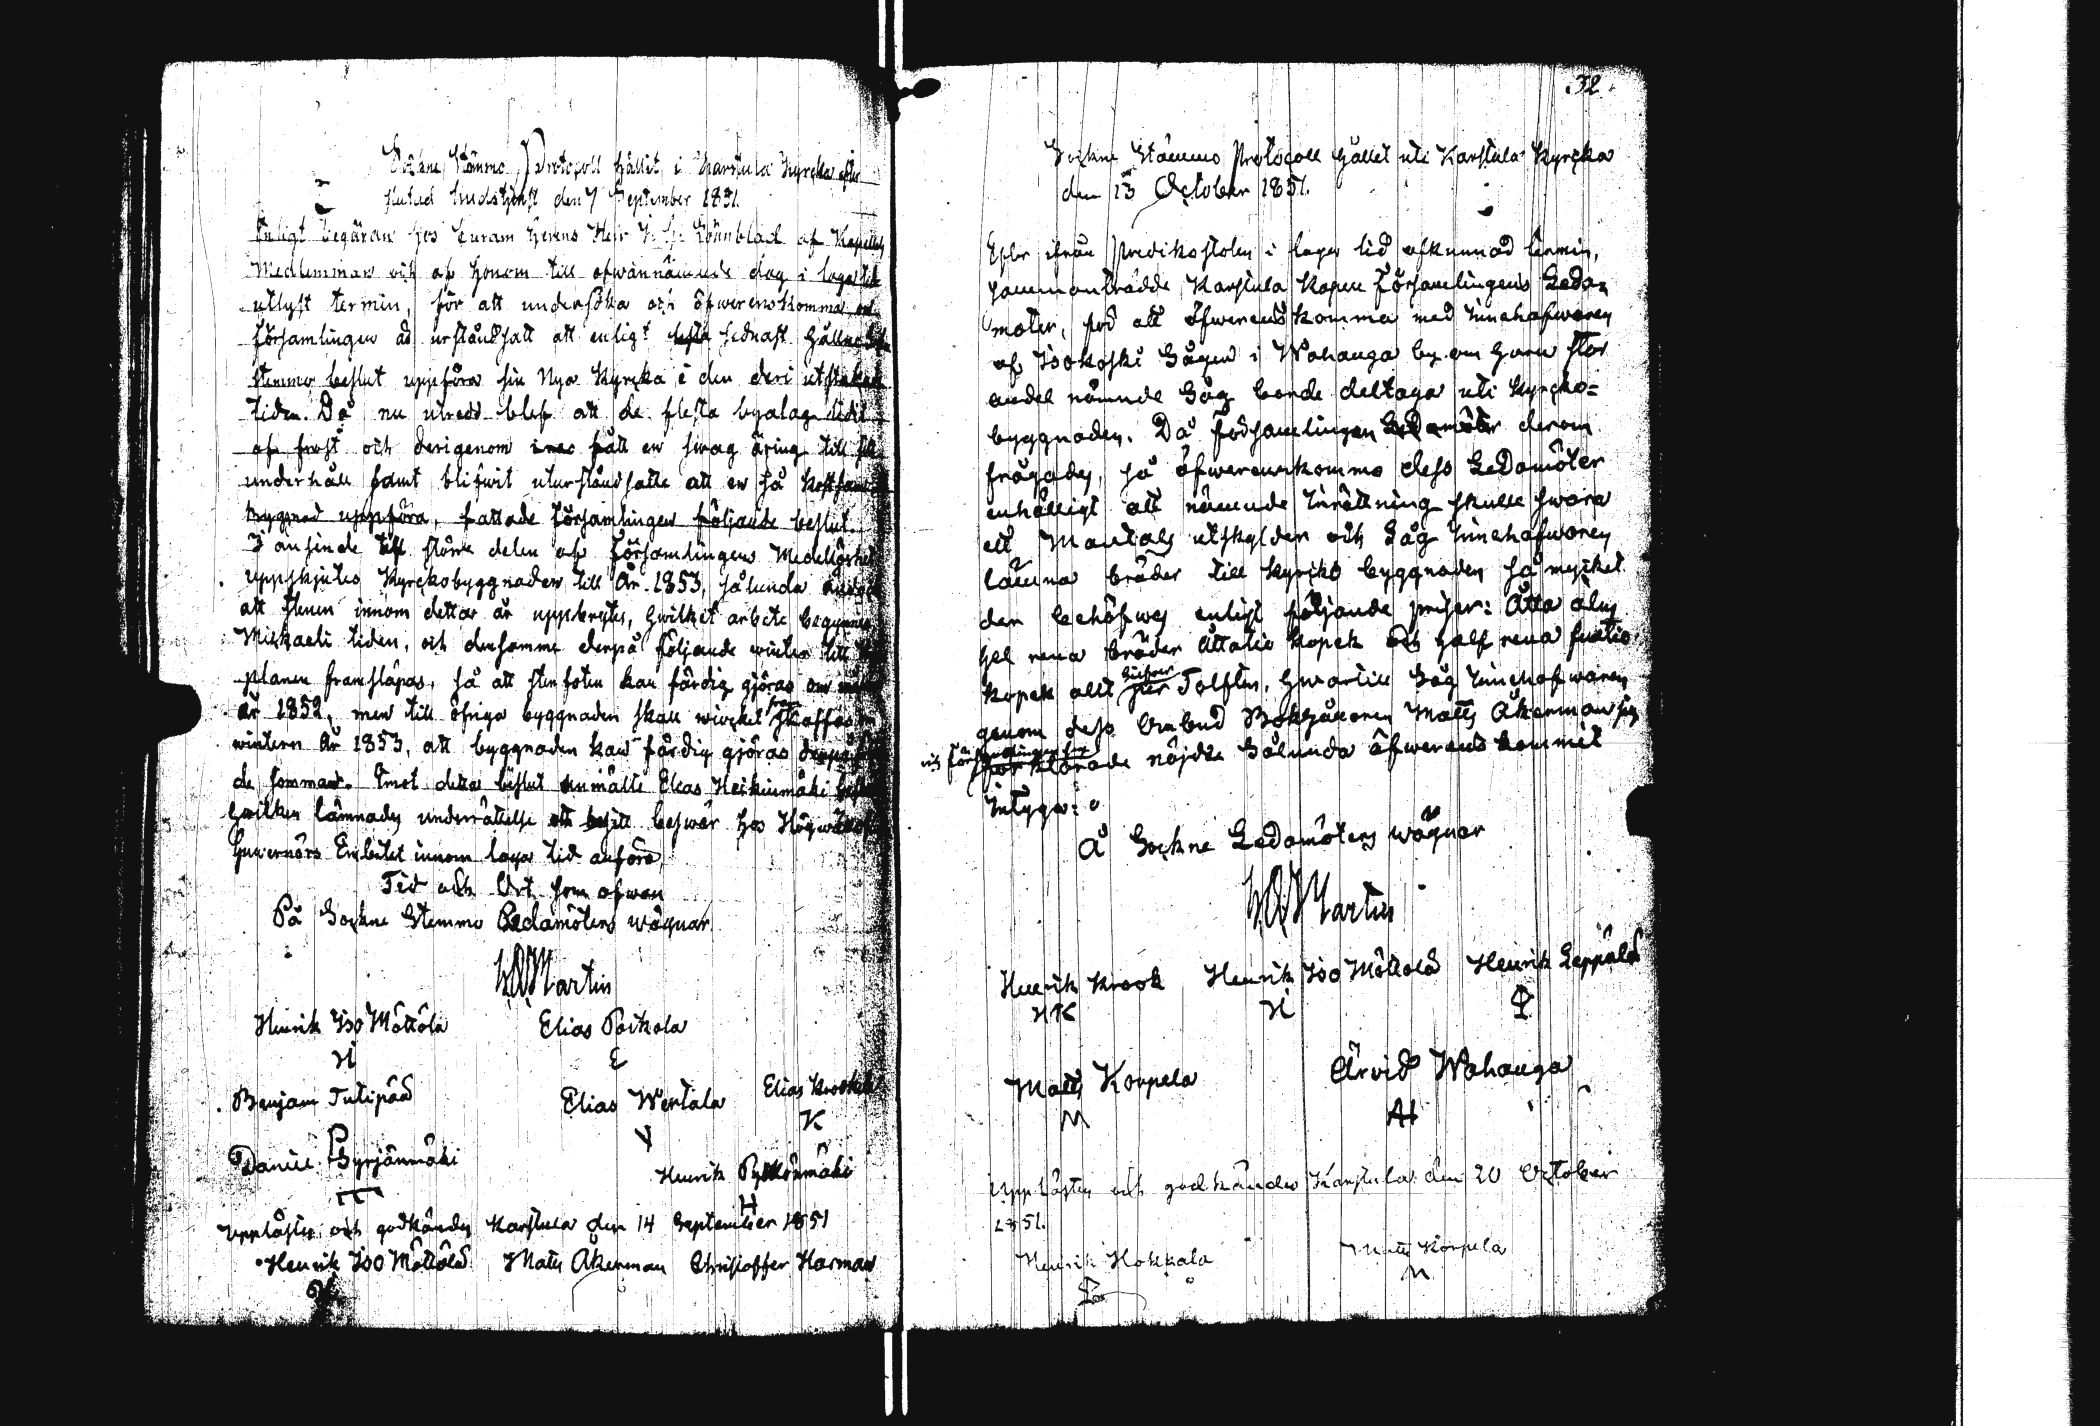 Sockne Stämmo Protocoll hållit i Karstula Kyrcka efter
slutad Gudstjenst den 7 September 1851.
Enligt begäran hos Curam Gerens Herr Lönnblad af Kapellets
Medlemmar och af honom till ofwannämnde dag i laga tid
utlyst termin, för att undersöka och öfwerenskomma om
Församlingen är urståndsatt att enligt sednast hållne
stemmo beslut uppföra sin Nya Kyrcka i den deri utstakade
tiden. Då nu utredd blef att de flesta byalag lidit
af frost och derigenom fått en swag äring till
underhåll samt blifwit uturståndsatte att en så kostsam
byggnad uppföra, fattade Församlingen följande beslut.
I anseende till större delen af Församlingens Medellöshet
uppskjutes Kyrckobyggnaden till År 1853, sålunda
att stenen innom detta år uppbrytes, hwilket arbete begynnes
Mickaeli tiden, och densamma derpå följande winter till
planen framsläpas, så att stenfoten kan färdig gjöras
År 1852, men till öfriga byggnaden skall wircket framskaffas
wintern År 1853, att byggnaden kan färdig gjöras
de sommar. Emot detta beslut anmälte Elias Heikinmäki
hwilken lämnades underrättelse att beswär hos
Guvernörs Embetet innom laga tid anföra,
Tid och Ort som ofwan
På Sockne Stemmo Ledamöters wägnar
Martin
Henrik Iso Möttölä Elias Poikola
H E
Benjam Tulipää Elias Wertala Elias Krook
V K
Daniel Syrjänmäki
Henrik Pykönmäki
H
Upplästes och godkändes Karstula den 14 September 1851
Henrik Iso Möttölä Matts Åkerman Christoffer Harman
32.
Sockne Stämmo Protocoll hållet uti Karstula Kyrcka
den 13 October 1851.
Efter ifrån Predikostolen i laga tid afkunnad termin,
sammanträdde Karstula Kapell Församlingens Leda=
möter, för att öfwerenskomma med Innehafwaren
af Isokoski Sågen i Wahanga by om huru stor
andel nämnde Såg borde deltaga uti Kyrcko=
byggnaden. Då Församlingen Ledamöter derom
frågades, så öfwerenskommo dess Ledamöter
enhälligt att nämnde Inrättning skulle swara
ett Mantals utskylder och Såg Innehafwaren
lämna bräder till Kyrcko byggnaden så mycket
der behöfwes enligt följande priser: Åtta alns
hel rena bräder Åttatio Kopek och half rena fämtio
kopek allt silfwer per Tolften, Hwartill Såg Innehafwaren
genom dess Ombud Bokhållaren Matts Åkerman sig
och Församlingen
förklarade nöjde Sålunda öfwerenskommit
Intyga:
Å Sockne Ledamöters wägnar
Martin
Henrik Krook Henrik Iso Möttölä Henrik Leppälä
HK H
Matts Korpela Arvid Wahanga
M AH
Uppläster och godkändes Karstula den 20 October
1851.
Henrik Hokkala Matts Korpela
M